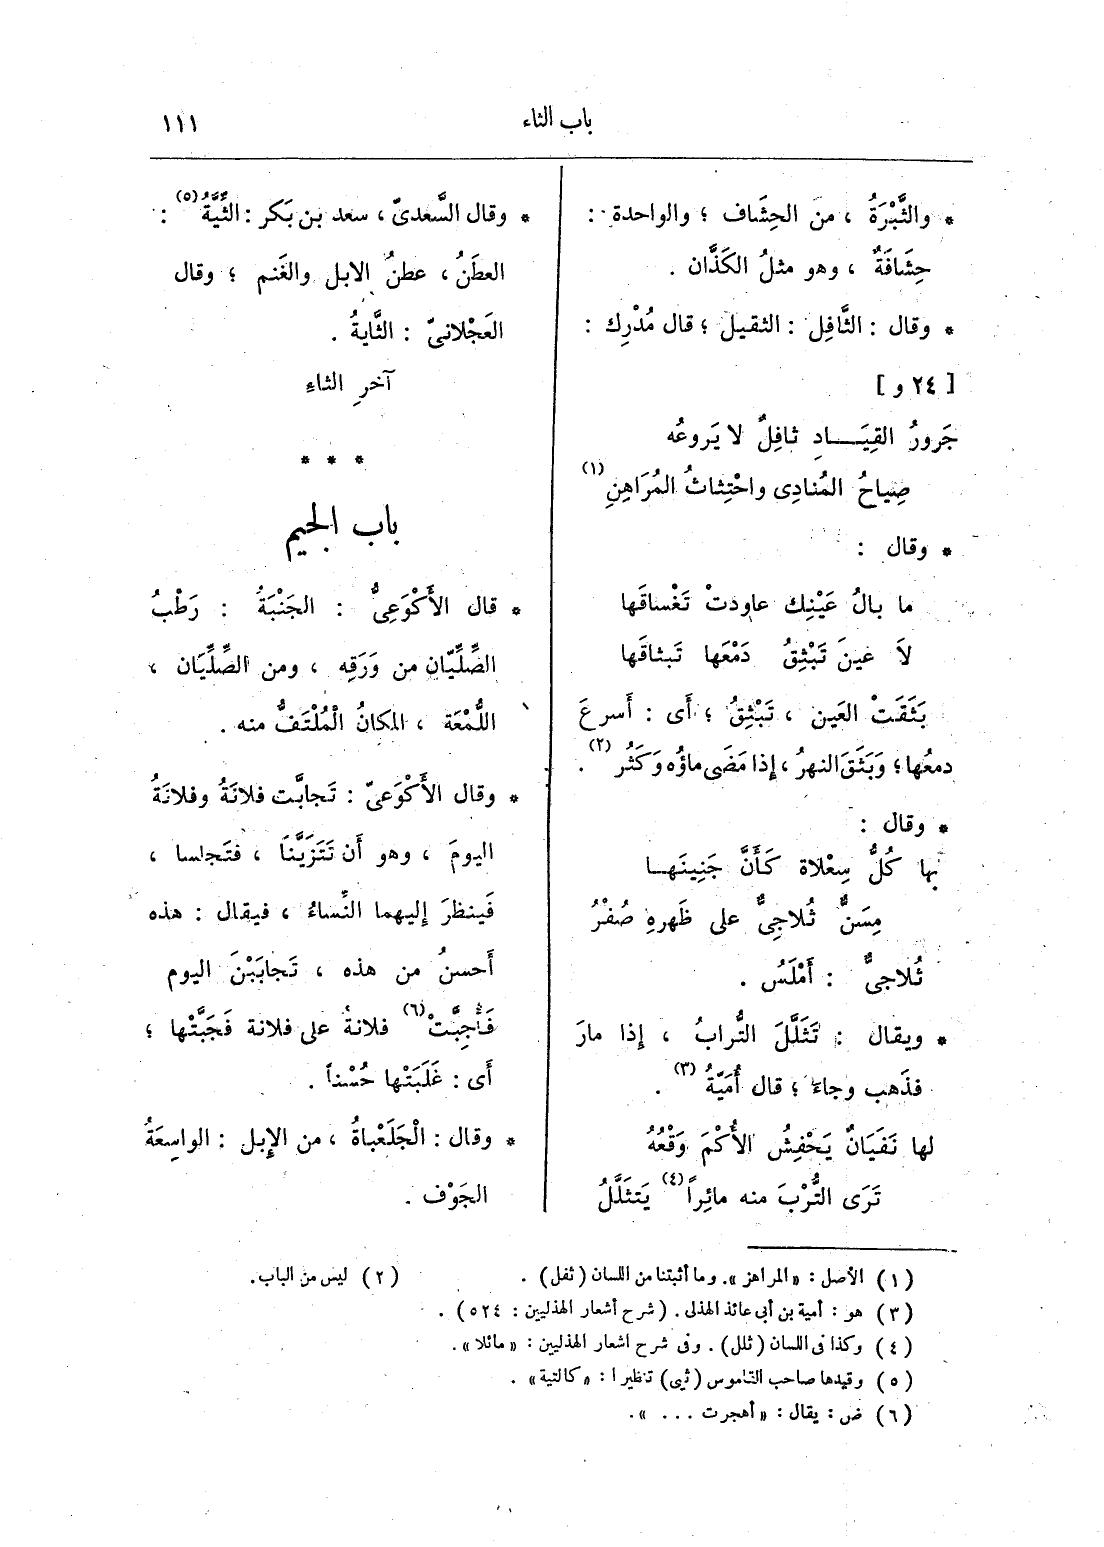 باب الثاء
١١١
* والثَّبْرَةُ ، من الحِشَاف ؛ والواحدة :
حِشَافَةٌ ، وهو مثلُ الكَذَّان .
* وقال : الثَّافِل : الثقيل ؛ قال مُدْرِك :
[ ٢٤ و ]
جَرورُ القِيَـــادِ ثافِلٌ لا يَروعُه
صِياحُ المُنادِى واحْتِثاثُ المُرَاهِنِ (١)
* وقال :
ما بالُ عَيْنِك عاودتْ تَغْساقَها
لاَ عينَ تَبْثِقُ دَمْعَها تَبثاقَها
بَثَقَتْ العَين ، تَبْثِقُ ؛ أَى : أَسرعَ
دمعُها ؛ وَبَثَقَ النهرُ ، إِذا مَضَى ماؤُه وَكَثُر (٢) .
* وقال :
بها كُلُّ سِعْلاة كَأَنَّ جَنِينَهــا
مِسَنٌّ ثُلاجِىٌّ على ظَهرهِ صُفْرُ
ثُلاجىٌّ : أَمْلَسُ .
* ويقال : تَثَلَّلَ التُّرابُ ، إِذا مارَ
فذَهب وجاءَ ؛ قال أُمَيَّةُ (٣) .
لها نَفَيَانٌ يَحْفِشُ الأُكْمَ وَقْعُهُ
تَرَى التُّرْبَ منه مائِراً (٤) يَتثَلَّلُ
* وقال السَّعدىّ ، سعد بن بَكر : الثُّيَّةُ (٥) :
العطَنُ ، عطنُ الابل والغَنم ؛ وقال
العَجْلانىّ : الثَّايةُ .
آخرِ الثاءِ
* * *
باب الجيم
* قال الأَكْوَعِىُّ : الجَنْبَةُ : رَطْبُ
الصِّلِّيَان من وَرَقِه ، ومن الصِّلِّيَان ،
اللُّمْعَة ، المكانُ الْمُلْتَفُّ منه .
* وقال الأَكْوَعىّ : تَجابَّت فلانَةُ وفلانَةُ
اليومَ ، وهو أَن تَتَزَيَّنَا ، فتَجلسا ،
فَينظرَ إِليهما النِّساءُ ، فيقال : هذه
أَحسنُ من هذه ، تَجابَبْنَ اليوم
فَأُجِبَّتْ (٦) فلانةُ على فلانة فَجَبَّتْها ؛
أَى : غَلَبَتْها حُسْناً .
* وقال : الْجَلَعْباةُ ، من الإِبل : الواسِعَةُ
الجَوْف .
(١) الأصل : «المراهز». وما أثبتنا من اللسان (ثفل) .
(٢) ليس من الباب.
(٣) هو : أمية بن أبى عائذ الهذلى . (شرح أشعار الهذليين : ٥٢٤) .
(٤) وكذا فى اللسان (ثلل) . وفى شرح اشعار الهذليين : «مائلا» .
(٥) وقيدها صاحب القاموس (ثيى) تنظيرا : «كالنية» .
(٦) ض : يقال : «أهجرت ... » .